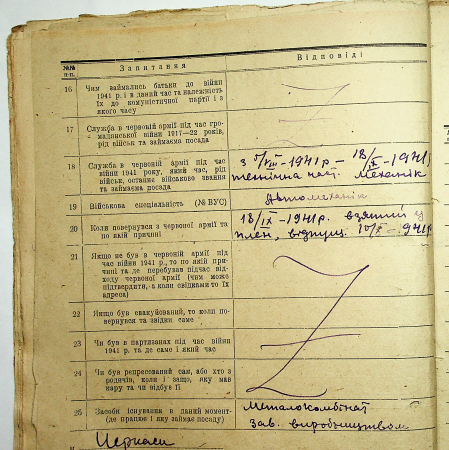 №№
п-п.
Запитання
Відповіді
16
Чим займались батьки до війни
1941 р. і в даний час та належність
їх до комуністичної партії і з
якого часу
17
Служба в червоній армії під час гро-
мадянської війни 1917—22 років,
рід військ та займаєма посада
18
Служба в червоній армії під час
війни 1941 року, який час, рід
військ, останнє військове звання
та займаєма посада
з 7/VIII-1941р – 18/IX-1941р
технічна част. Механік
19
Військова спеціальність (№ ВУС)
Автомеханік
20
Коли повернувся з червоної армії та
по якій причині
18/IX-1941р. взятий у
плен, відпущ. 10/X-1941р
21
Якщо не був в червоній армії під
час війни 1941 р., то по якій при-
чині та де перебував підчас від-
ходу червоної армії (чим може
підтвердити, а коли свідками то їх
адреса)
22
Якщо був евакуйований, то коли по-
вернувся та звідки саме
23
Чи був в партизанах під час війни
1941 р. та де саме і який час
24
Чи був репресований сам, або хто з
родичів, коли і защо, яку мав
кару та чи відбув її
25
Засоби існування в даний момент
(де працює і яку займає посаду)
Металокомбінат
Зав. виробництвом
Черкаси